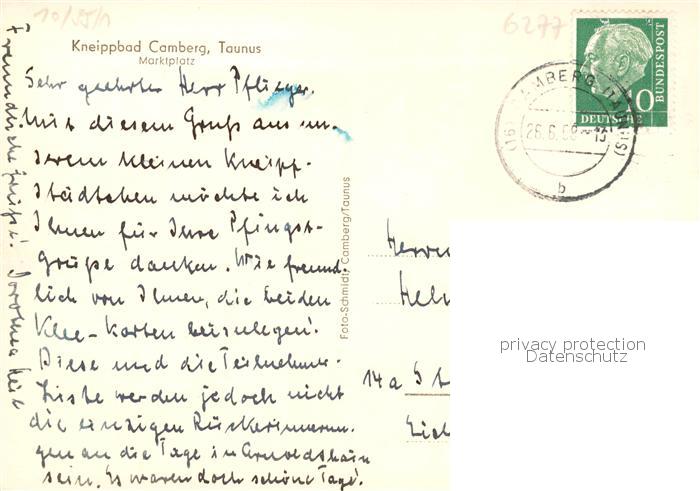 10/55/1
6277
Kneippbad Camberg, Taunus
Marktplatz
Sehr geehrter Herr Pflieger.
Mit diesem Gruß aus un-
serem kleinen Kneipp-
städtchen möchte ich
Ihnen für Ihre Pfingst-
grüße danken. Wie freund-
lich von Ihnen, die beiden
Klee-Karten beizulegen!
Diese und die Teilnehmer-
liste werden jedoch nicht
die einzigen Rückerinnerun-
gen an die Tage in Arnoldshain
sein. Es waren doch schöne Tage!
Freundliche Grüße! Dorothea
Foto-Schmidt, Camberg/Taunus
DEUTSCHE
BUNDESPOST
10
(16) CAMBERG (TAUNUS)
26.6.
b
Herrn
Hel
14a St
privacy protection
Datenschutz